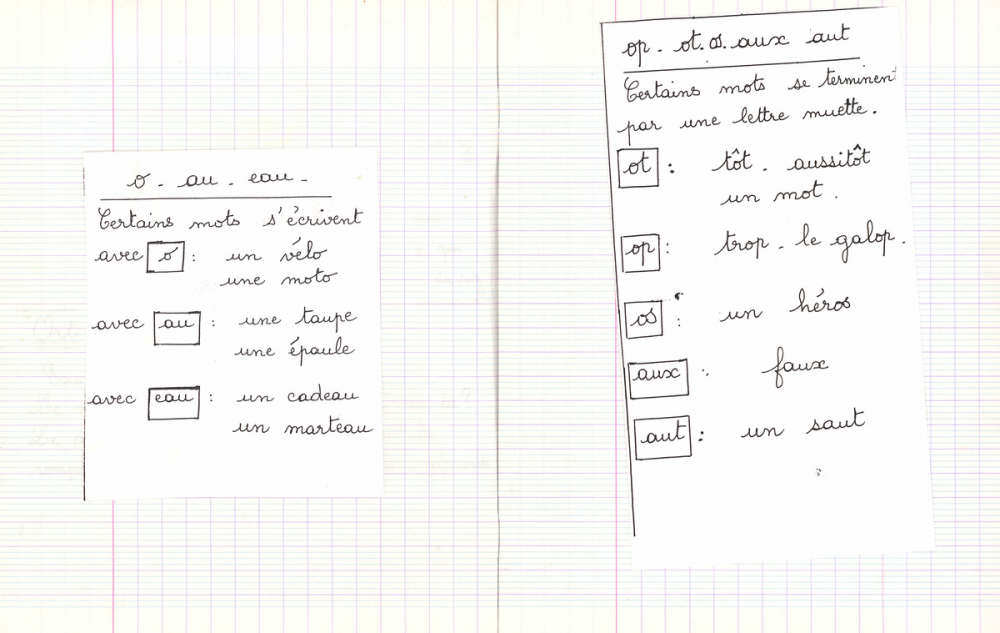 o - au - eau -
Certains mots s'écrivent
avec o : un vélo
une moto
avec au : une taupe
une épaule
avec eau : un cadeau
un marteau
op - ot. os. aux aut
Certains mots se terminent
par une lettre muette.
ot : tôt - aussitôt
un mot.
op : trop - le galop.
os : un héros
aux : faux
aut : un saut